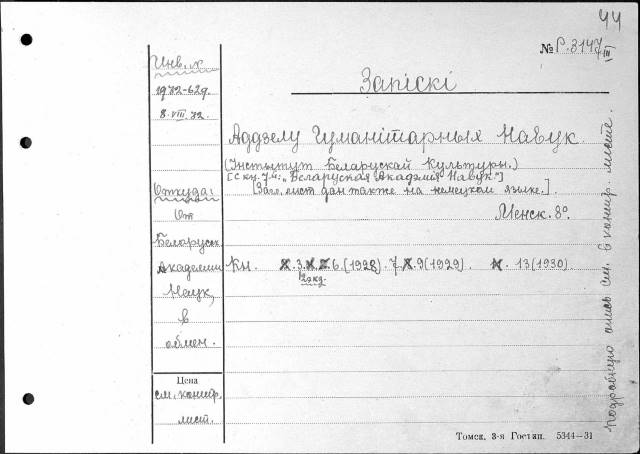 44
№ Р.3147
(III)
Инв. х
1972-629.
8.VIII.72.
Запіскі
Аддзелу Гуманітарных Навук.
(Інстытут Беларускай Культуры.)
[с кн. 7-й: „Беларуская Академия Навук"]
[Загл. лист дан также на немецком языке.].
Менск. 8º.
Откуда:
От
Беларуск.
Академии
Наук,
в
обмен.
Кн. 3. 6.(1928). 7. 9(1929). 13(1930).
2 экз.
Цена
см. контр.
лист.
подробную опись см. в контр. листе.
Томск, 3-я Гостип. 5344—31